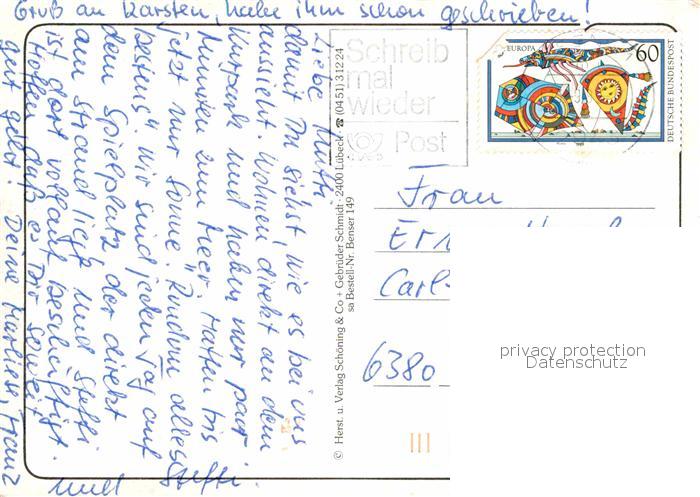 Gruß an Karsten, habe ihm schon geschrieben!
Liebe Mutti
damit Du siehst, wie es bei uns
aussieht. Wohnen direkt an dem
Kurpark und haben nur paar
Minuten zum Meer. Hatten bis
jetzt nur Sonne. Rundum "alles
bestens". Wir sind jeden Tag auf
dem Spielplatz, der direkt
am Strand liegt und Steffi
ist dort vollauf beschäftigt.
Hoffen daß es Dir soweit
gut geht. Deine Marlies, Franz
und Steffi.
© Herst. u. Verlag Schöning & Co + Gebrüder Schmidt · 2400 Lübeck ☎ (04 51) 3 12 24
sa Bestell-Nr. Benser 149
Schreib
mal
wieder
Post
EUROPA
60
DEUTSCHE BUNDESPOST
Frau
Carl-
6380
privacy protection
Datenschutz